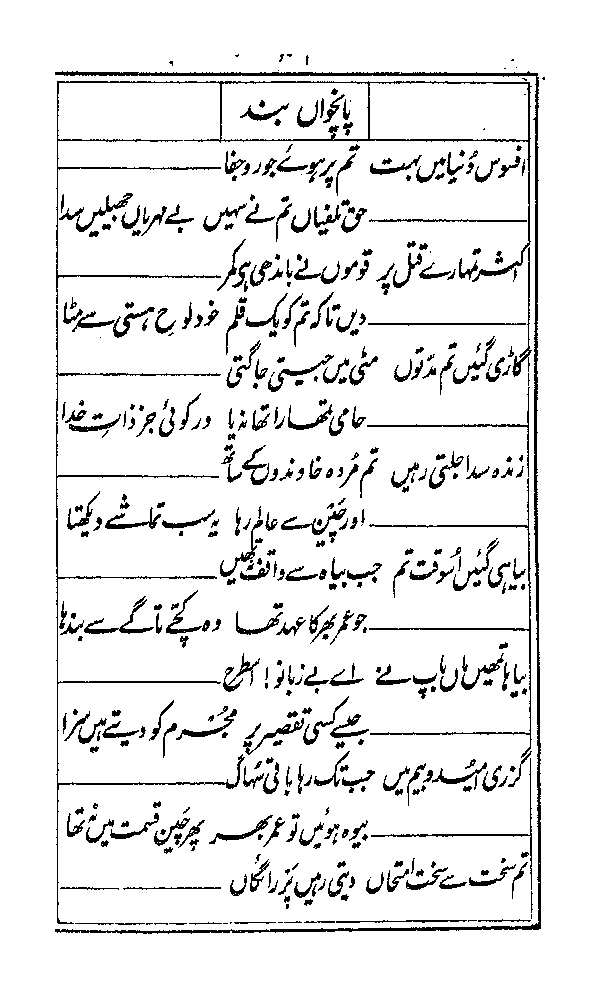 پانچواں بند
افسوس دُنیا میں بہت تم پر ہوئے جور و جفا
حق تلفیاں تم نے سہیں بے مہریاں جھیلیں سدا
اکثر تمہارے قتل پر قوموں نے باندھی ہی کمر
دیں تاکہ تم کو یک قلم خود لوحِ ہستی سے مٹا
گاڑی گئیں تم مدّتوں مٹی میں جیتی جاگتی
حامی تمھارا تھا نہ یا ور کوئی جز ذاتِ خدا
زندہ سدا جلتی رہیں تم مُردہ خاوندوں کے ساتھ
اور چَین سے عالم رہا یہ سب تماشے دیکھتا
بیاہی گئیں اُسوقت تم جب بیاہ سے واقف نتھیں
جو عمر بھر کا عہد تھا وہ کچّے تاگے سے بندھا
بیاہا تمھیں ماں باپ نے اے بے زبانو! اسطرح
جیسے کسی تقصیر پر مجُرم کو دیتے ہیں سزا
گزری اُمید و بیم میں جب تک رہا باقی سُہاگ
بیوہ ہوئیں تو عمر بھر پھر چَین قسمت میں نہ تھا
تم سخت سے سخت امتحاں دیتی رہیں پَر رائگاں